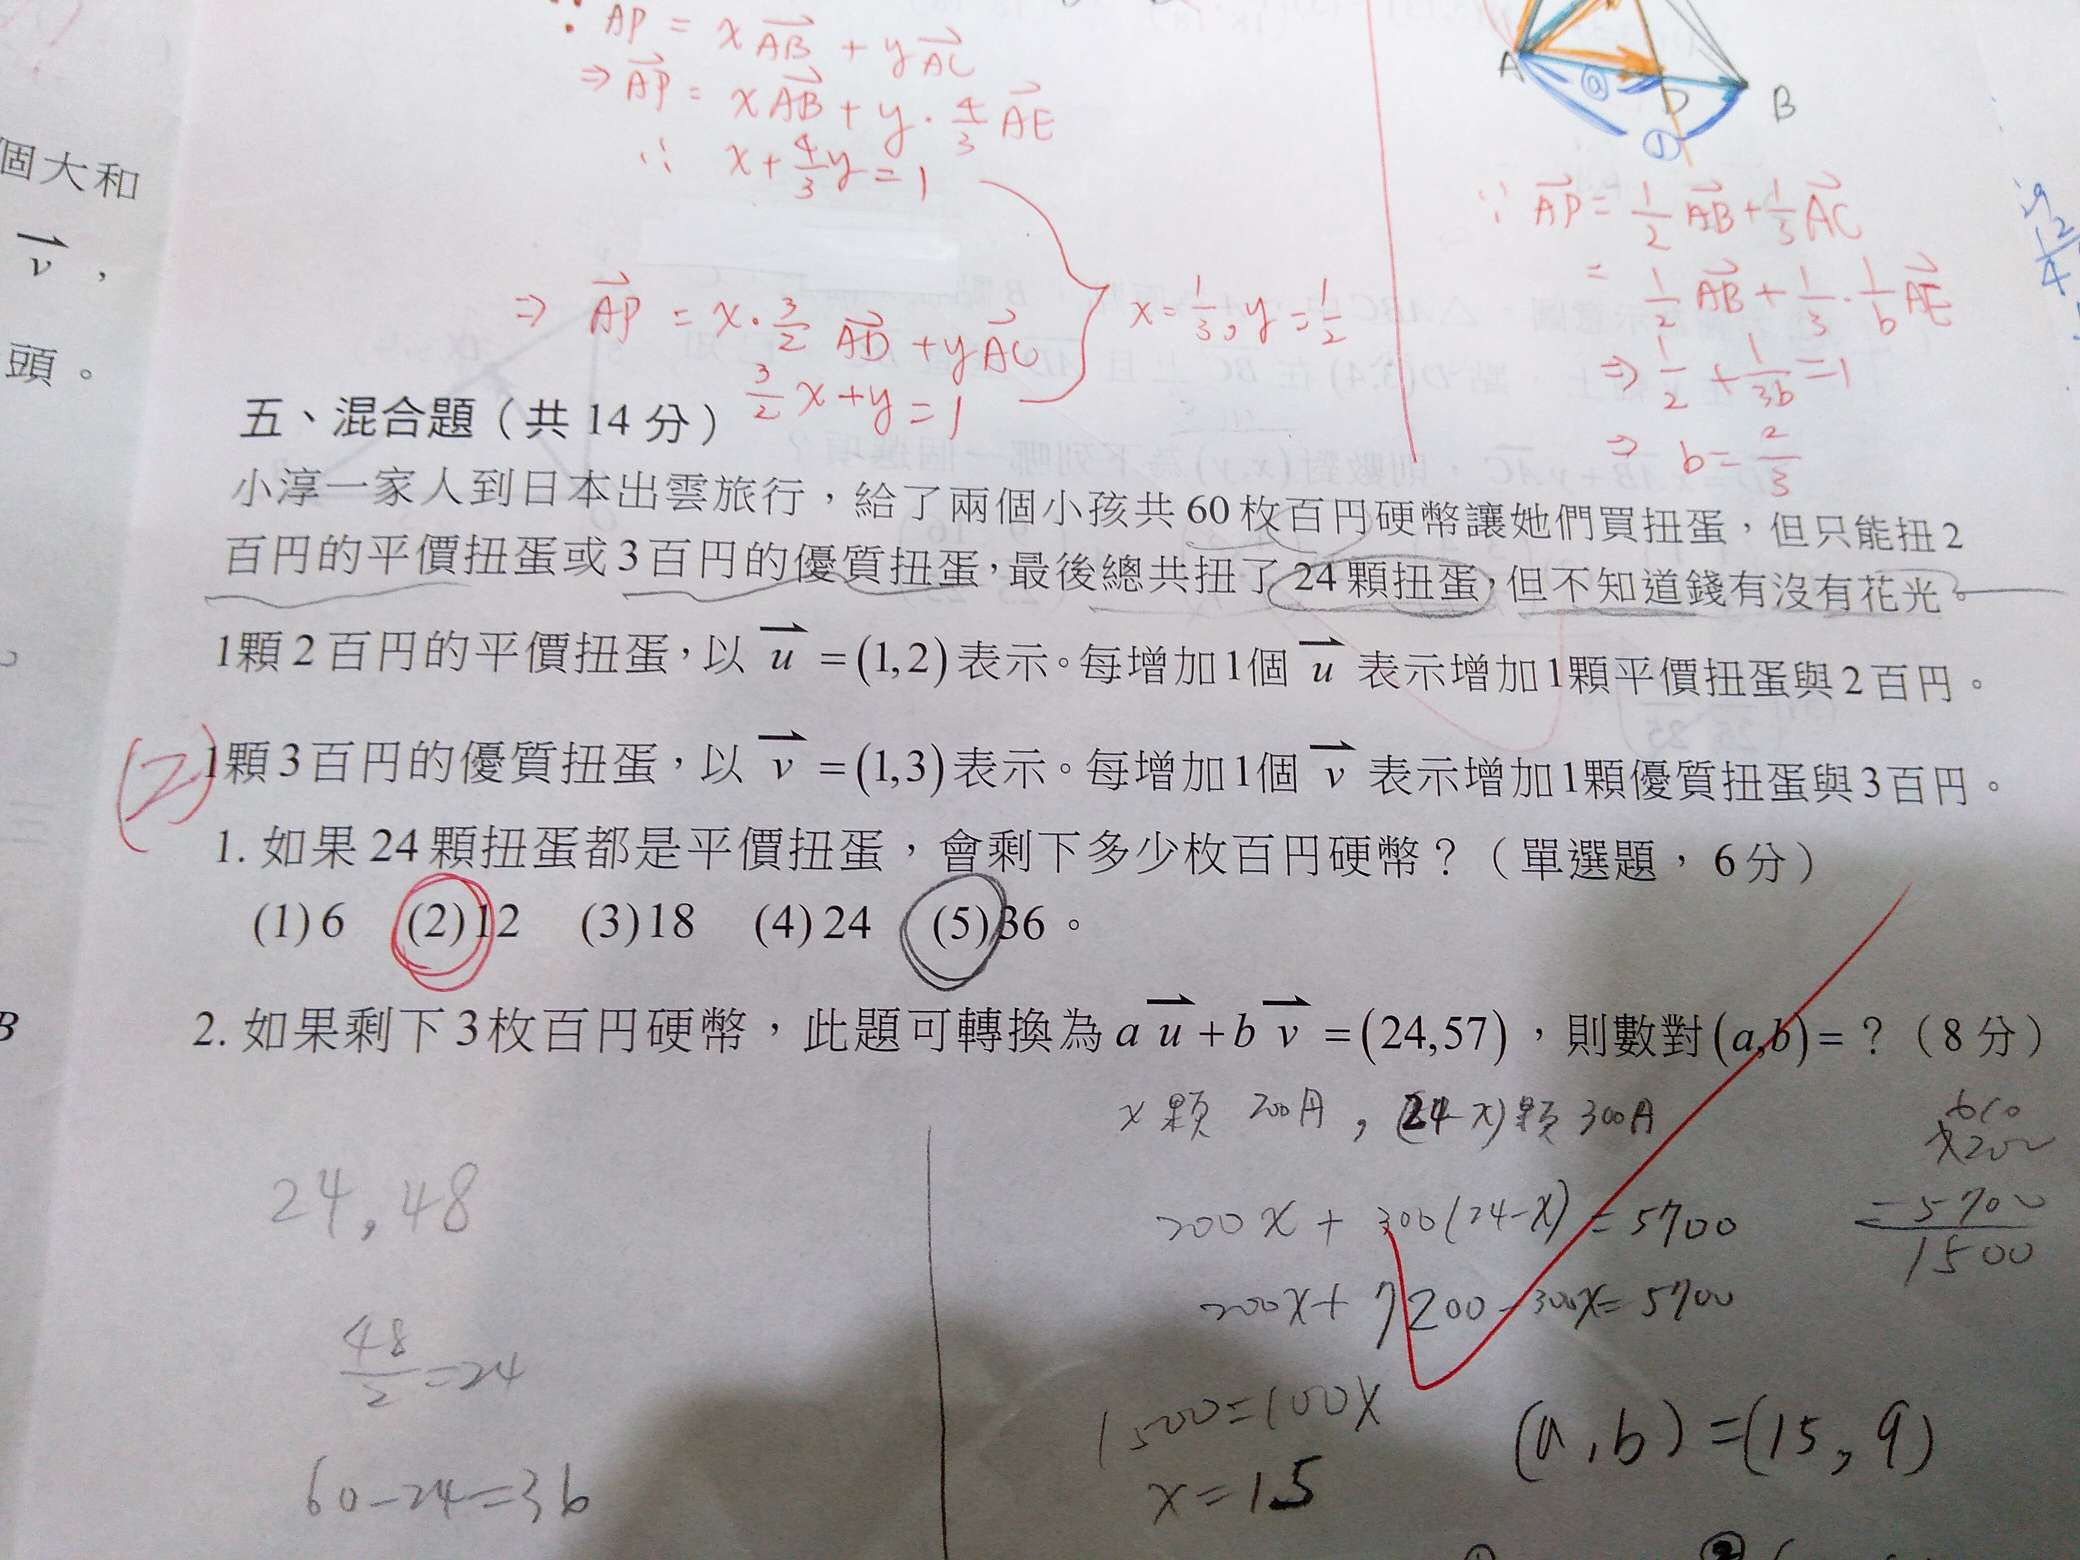 ∵ AP = xAB + yAC
⇒ AP = xAB + y · 4/3 AE
∴ x + 4/3 y = 1
⇒ AP = x · 3/2 AD + yAC
3/2 x + y = 1
x = 1/3, y = 1/2
A
D
B
∵ AP = 1/2 AB + 1/3 AC
= 1/2 AB + 1/3 · 1/b AE
⇒ 1/2 + 1/3b = 1
⇒ b = 2/3
個大和
v ,
頭。
B
五、混合題(共 14 分)
小淳一家人到日本出雲旅行,給了兩個小孩共 60 枚百円硬幣讓她們買扭蛋,但只能扭 2
百円的平價扭蛋或 3 百円的優質扭蛋,最後總共扭了 24 顆扭蛋,但不知道錢有沒有花光。
1顆 2 百円的平價扭蛋,以 u = (1,2) 表示。每增加1個 u 表示增加1顆平價扭蛋與 2 百円。
(2)
1顆 3 百円的優質扭蛋,以 v = (1,3) 表示。每增加1個 v 表示增加1顆優質扭蛋與 3 百円。
1. 如果 24 顆扭蛋都是平價扭蛋,會剩下多少枚百円硬幣?(單選題,6 分)
(1) 6 (2) 12 (3) 18 (4) 24 (5) 36。
2. 如果剩下 3 枚百円硬幣,此題可轉換為 a u + b v = (24,57),則數對 (a,b) = ?(8 分)
24, 48
48/2 = 24
60 - 24 = 36
x 顆 200円, (24-x) 顆 300円
200x + 300(24-x) = 5700
200x + 7200 - 300x = 5700
1500 = 100x
x = 15
(a, b) = (15, 9)
- 5700
1500